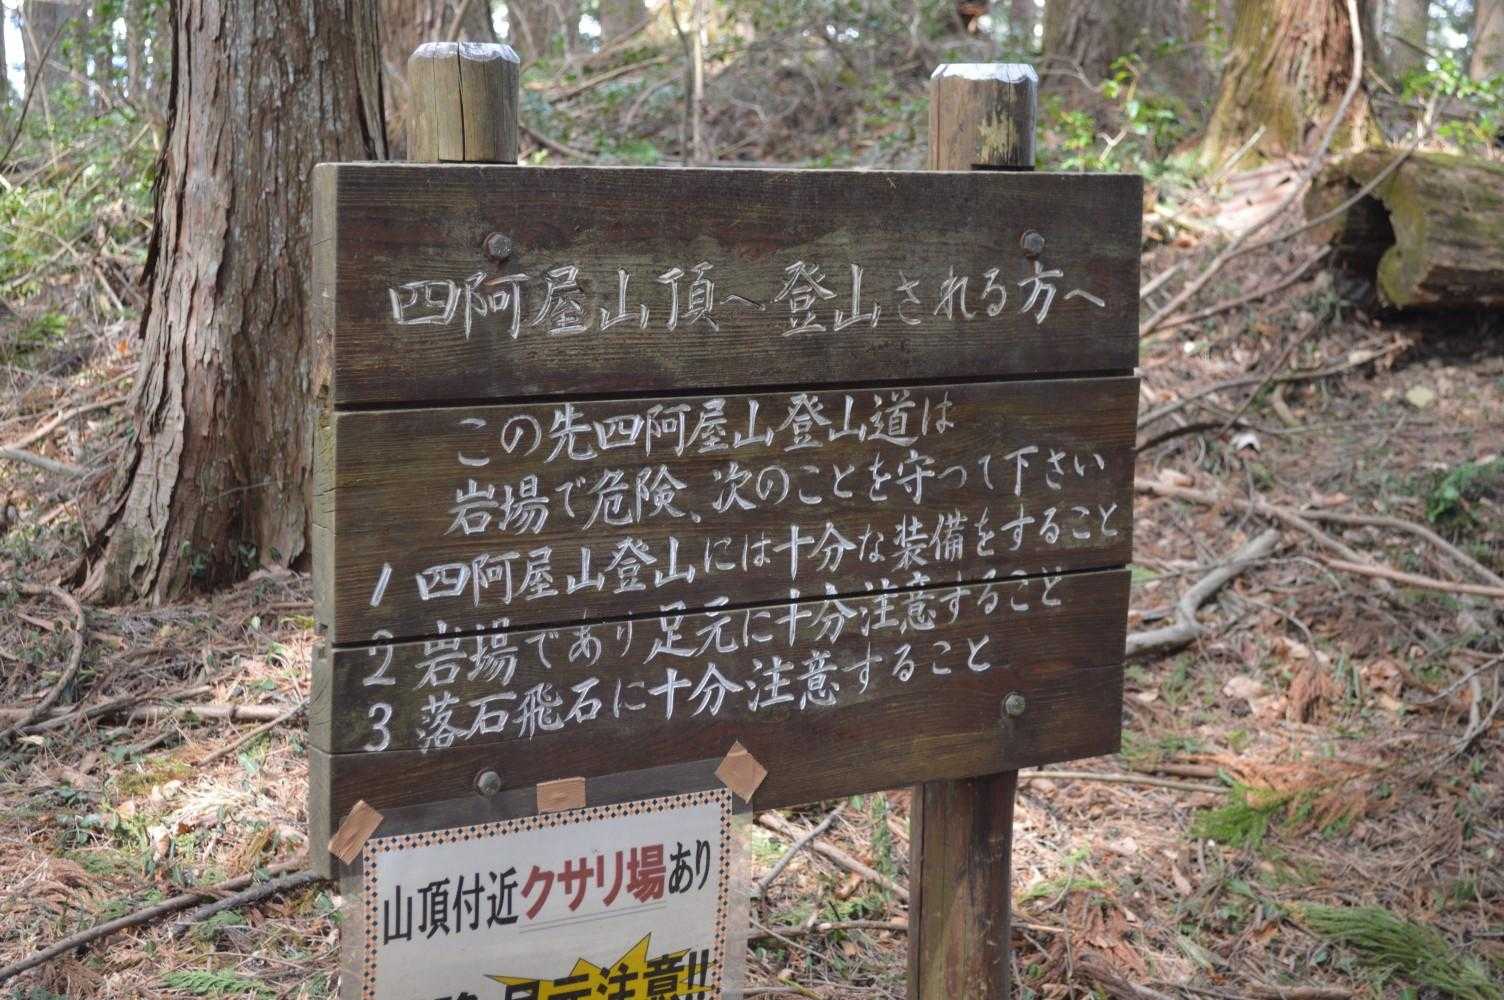 四阿屋山頂へ登山される方へ
この先四阿屋山登山道は
岩場で危険、次のことを守って下さい
1 四阿屋山登山には十分な装備をすること
2 岩場であり足元に十分注意すること
3 落石飛石に十分注意すること
山頂付近クサリ場あり
足元注意!!